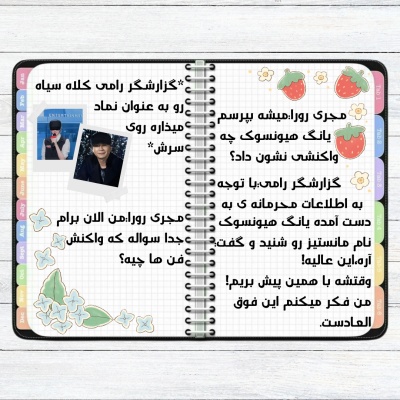 مجری رورا:میشه بپرسم
یانگ هیونسوک چه
واکنشی نشون داد؟
گزارشگر رامی:با توجه
به اطلاعات محرمانه ی به
دست آمده یانگ هیونسوک
نام مانستیز رو شنید و گفت:
آره،این عالیه!
وقتشه با همین پیش بریم!
من فکر میکنم این فوق
العادست.
*گزارشگر رامی کلاه سیاه
رو به عنوان نماد
میذاره روی
سرش*
مجری رورا:من الان برام
جدا سواله که واکنش
فن ها چیه؟